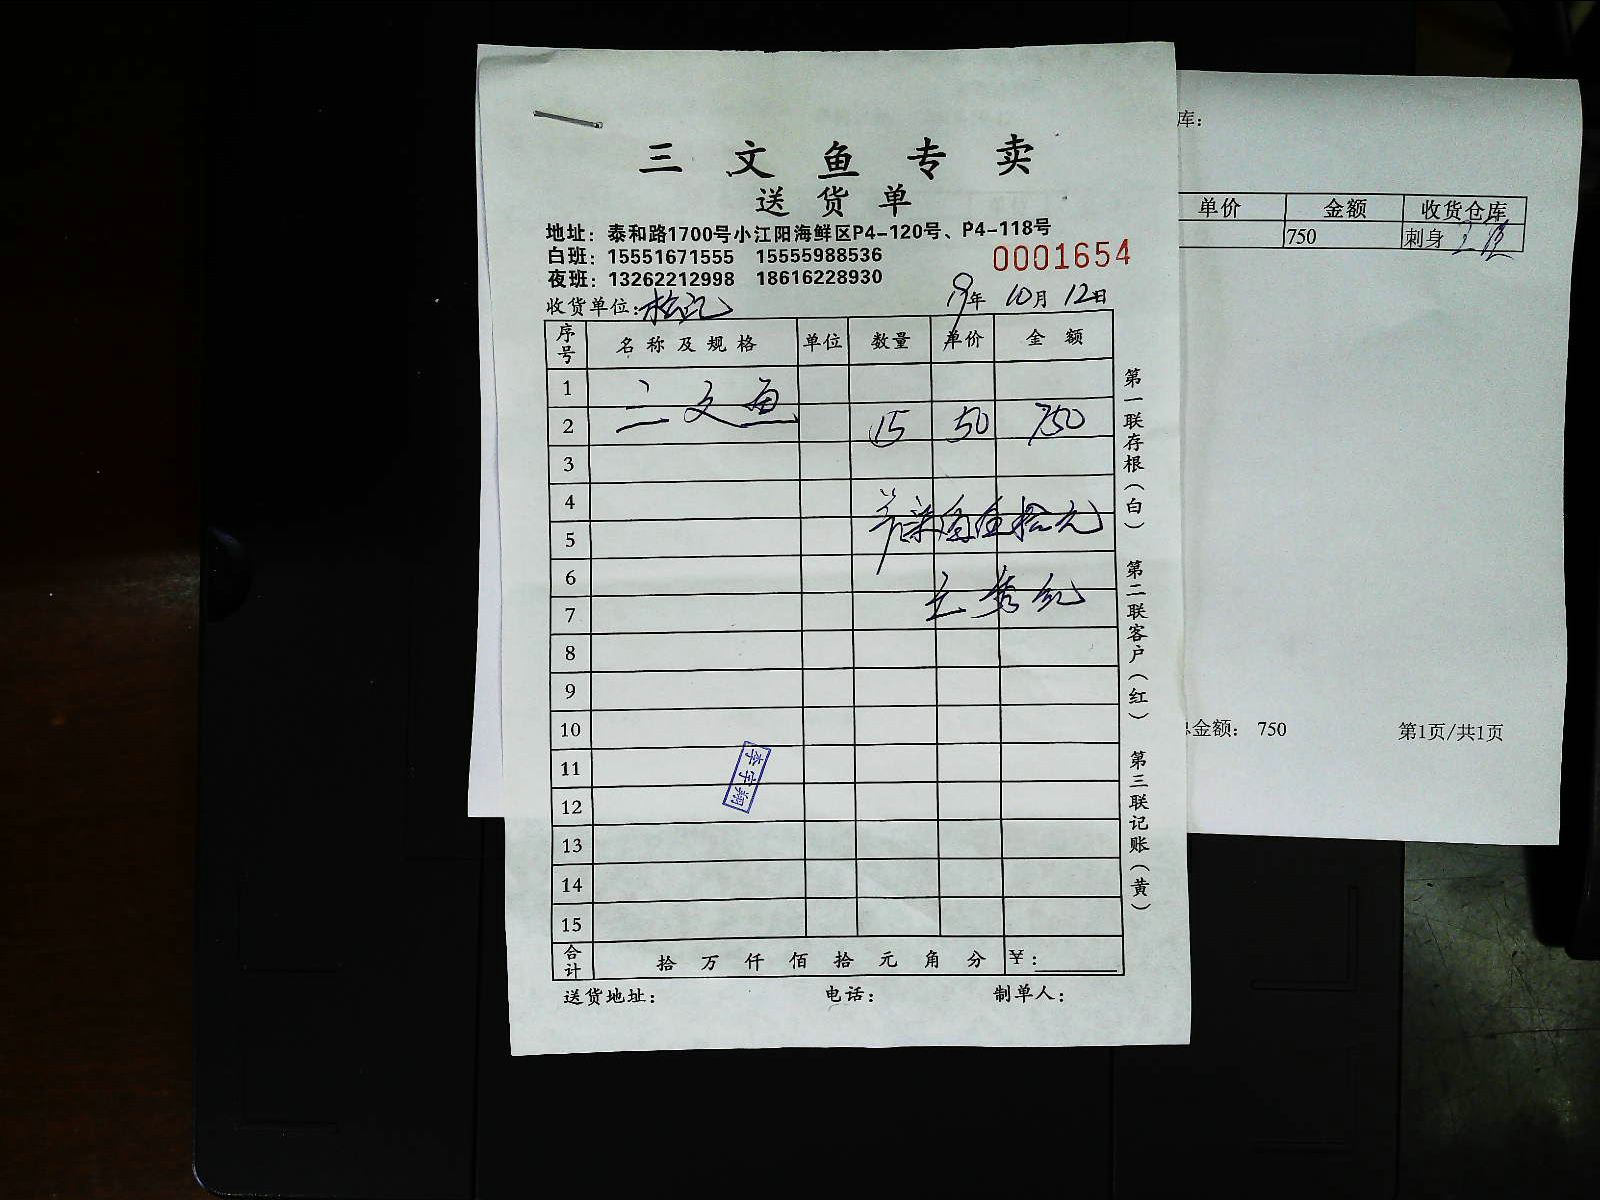 三文鱼专卖
送货单
地址：泰和路1700号小江阳海鲜区P4-120号、P4-118号
白班：15551671555 15555988536
夜班：13262212998 18616228930
0001654
收货单位： 19年 10月 12日
序号 名称及规格 单位 数量 单价 金额
1 三文鱼
2 15 50 750
3
4
5
6
7
8
9
10
11
12
13
14
15
李宇翔
合计 拾 万 仟 佰 拾 元 角 分 ￥：
送货地址： 电话： 制单人：
第一联存根（白） 第二联客户（红） 第三联记账（黄）
库：
单价 金额 收货仓库
750 刺身
总金额： 750 第1页/共1页